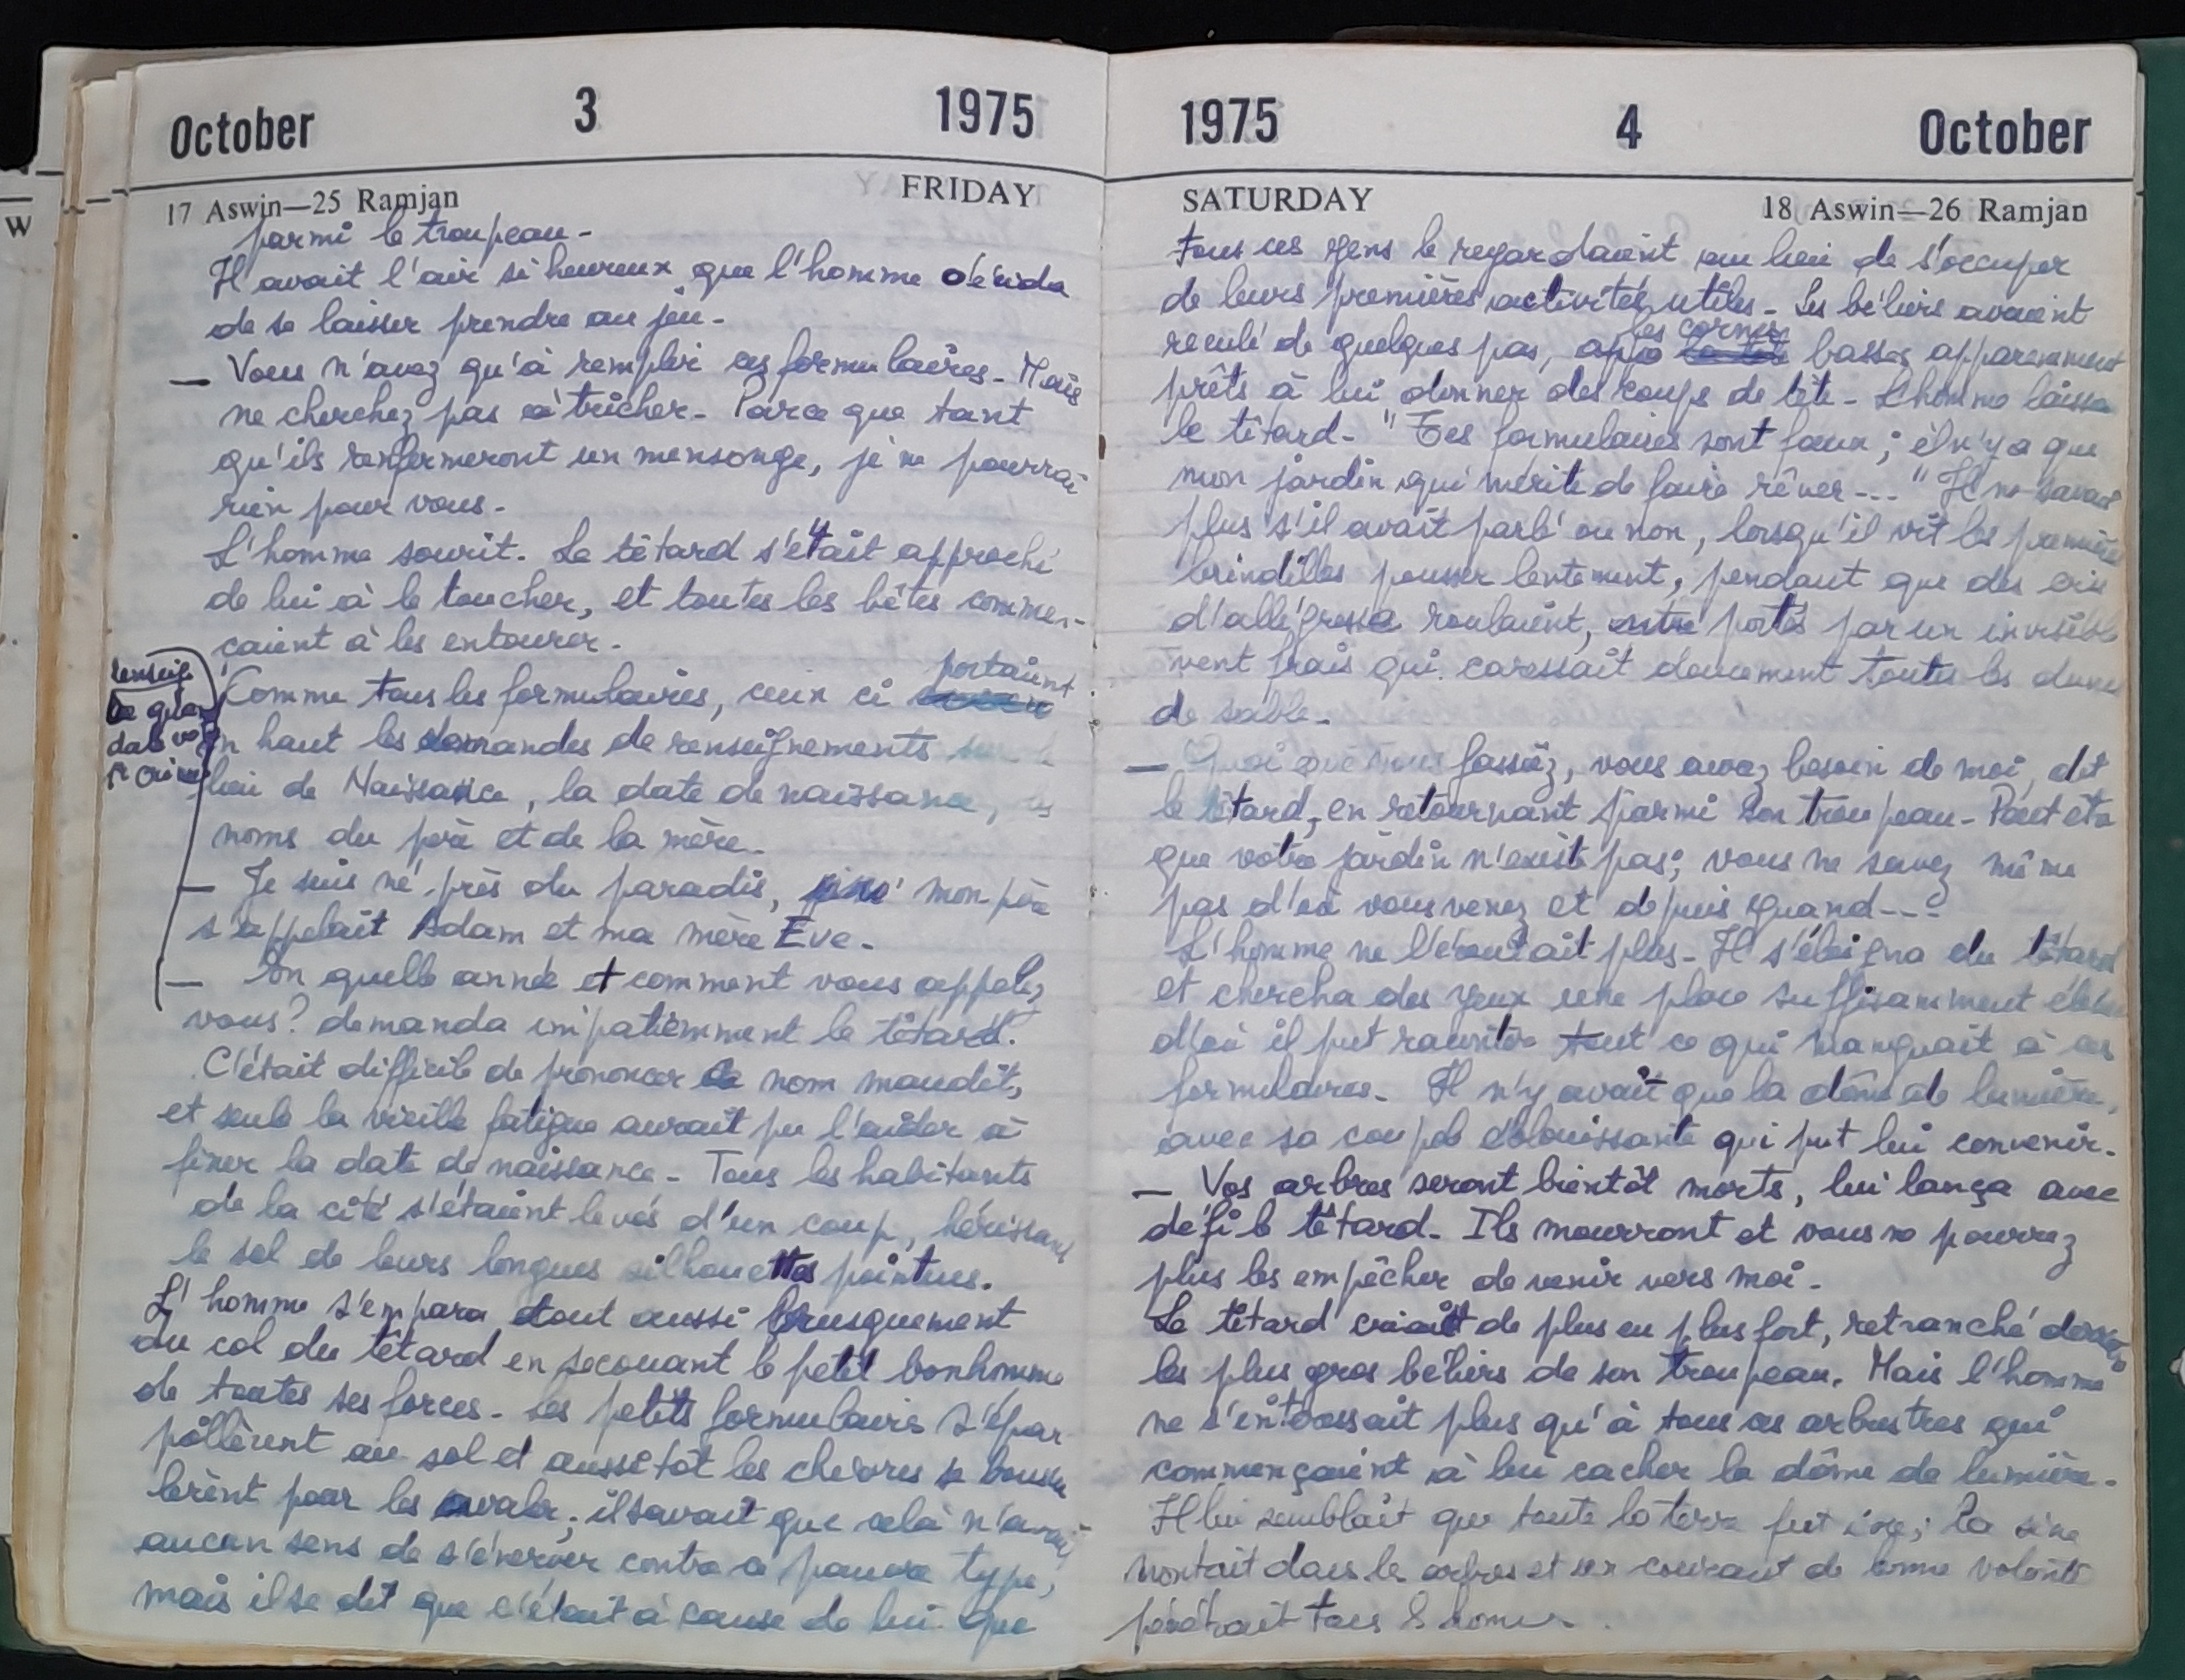 October 3 1975
17 Aswin—25 Ramjan FRIDAY
parmi le troupeau-
Il avait l'air si heureux que l'homme décida
de se laisser prendre au jeu-
— Vous n'avez qu'à remplir ces formulaires- Mais
ne cherchez pas à tricher- Parce que tant
qu'ils renfermeront un mensonge, je ne pourrai
rien pour vous-
L'homme sourit. Le têtard s'était approché
de lui à le toucher, et toutes les bêtes commen-
çaient à les entourer-
portaient
Comme tous les formulaires, ceux ci
en haut les demandes de renseignements
lieu de Naissance, la date de naissance, les
noms du père et de la mère-
— Je suis né près du paradis, mon père
s'appelait Adam et ma mère Eve-
— En quelle année et comment vous appelez
vous? demanda impatiemment le têtard.
C'était difficile de prononcer ce nom maudit,
et seule la vieille fatigue aurait pu l'aider à
fixer la date de naissance- Tous les habitants
de la cité s'étaient levés d'un coup, hérissant
le sol de leurs longues silhouettes pointues.
L'homme s'empara tout aussi brusquement
du col du têtard en secouant le petit bonhomme
de toutes ses forces- Les petits formulaires s'épar
pillèrent au sol et aussitôt les chèvres se bouscu
lèrent pour les avaler; il savait que celà n'avait
aucun sens de s'énerver contre ce pauvre type,
mais il se dit que c'était à cause de lui que
renseig
dat
1975 4 October
SATURDAY 18 Aswin—26 Ramjan
tous ces gens le regardaient au lieu de s'occuper
de leurs premières activités utiles- Les béliers avaient
les cornes
reculé de quelques pas, basses apparemment
prêts à lui donner des coups de tête- L'homme laissa
le têtard- "Tes formulaires sont faux; il n'y a que
mon jardin qui mérite de faire rêver---" Il ne savait
plus s'il avait parlé ou non, lorsqu'il vit les premières
brindilles pousser lentement, pendant que des cris
d'allégresse roulaient, portés par un invisible
vent frais qui caressait doucement toutes les dunes
de sable-
— Quoi que vous fassiez, vous avez besoin de moi, dit
le têtard, en retournant parmi son troupeau- Peut etre
que votre jardin n'existe pas; vous ne savez même
pas d'où vous venez et depuis quand---
L'homme ne l'écoutait plus- Il s'éloigna du têtard
et chercha des yeux une place suffisamment élevée
d'où il put tout ce qui manquait à ces
formulaires- Il n'y avait que le dôme de lumière,
avec sa coupole éblouissante qui put lui convenir-
— Vos arbres seront bientôt morts, lui lança avec
défi le têtard- Ils mourront et vous ne pourrez
plus les empêcher de venir vers moi-
Le têtard criait de plus en plus fort, retranché derrière
les plus gros béliers de son troupeau. Mais l'homme
ne s'intéressait plus qu'à tous ces arbustres qui
commençaient à lui cacher le dôme de lumière-
Il lui semblait que toute la terre fut ivre; la sève
montait dans les arbres et un courant de bonne volonté
pénétrait tous